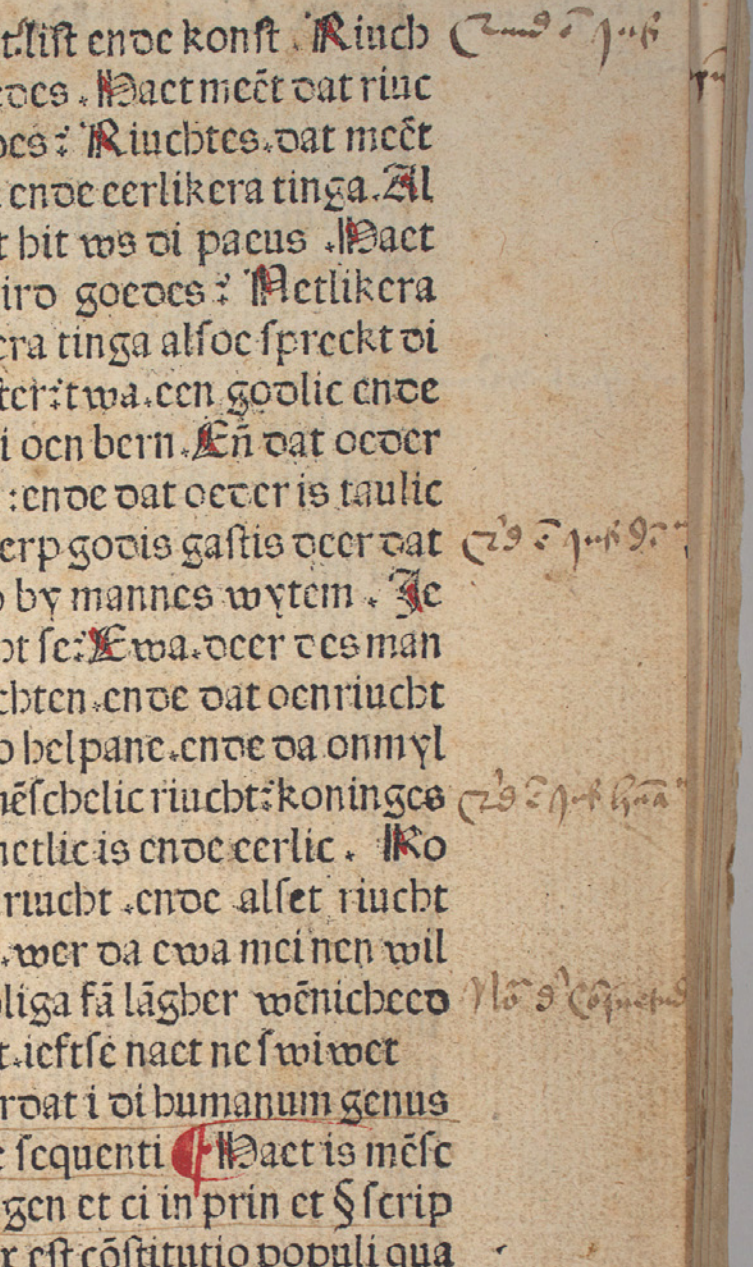 t:list ende konst . Riuch
edes . Haet meēt dat riuc
des : Riuchtes. dat meēt
ende eerlikera tinga. Al
t hit ws di paeus . Haet
ird goedes : Netlikera
era tinga alsoe spreckt di
ster: twa. een godlic ende
i oen bern . Eñ dat oeder
: ende dat oeder is taulic
erp godis gastis deer dat
by mannes wytem . Je
ht se: Ewa. deer des man
chten . ende dat oen riucht
o helpane . ende da onmyl
mēschelic riucht: koninges
netlic is ende eerlic . Ko
riucht . ende alset riucht
. wer da ewa meinen wil
liga fā lāgher wēnicheed
t. ieftse naet ne swiwet
rdat i di humanum genus
sequenti ¶ Haet is mēsc
gen et ci in prin et § scrip
r est cōstitutio populi qua